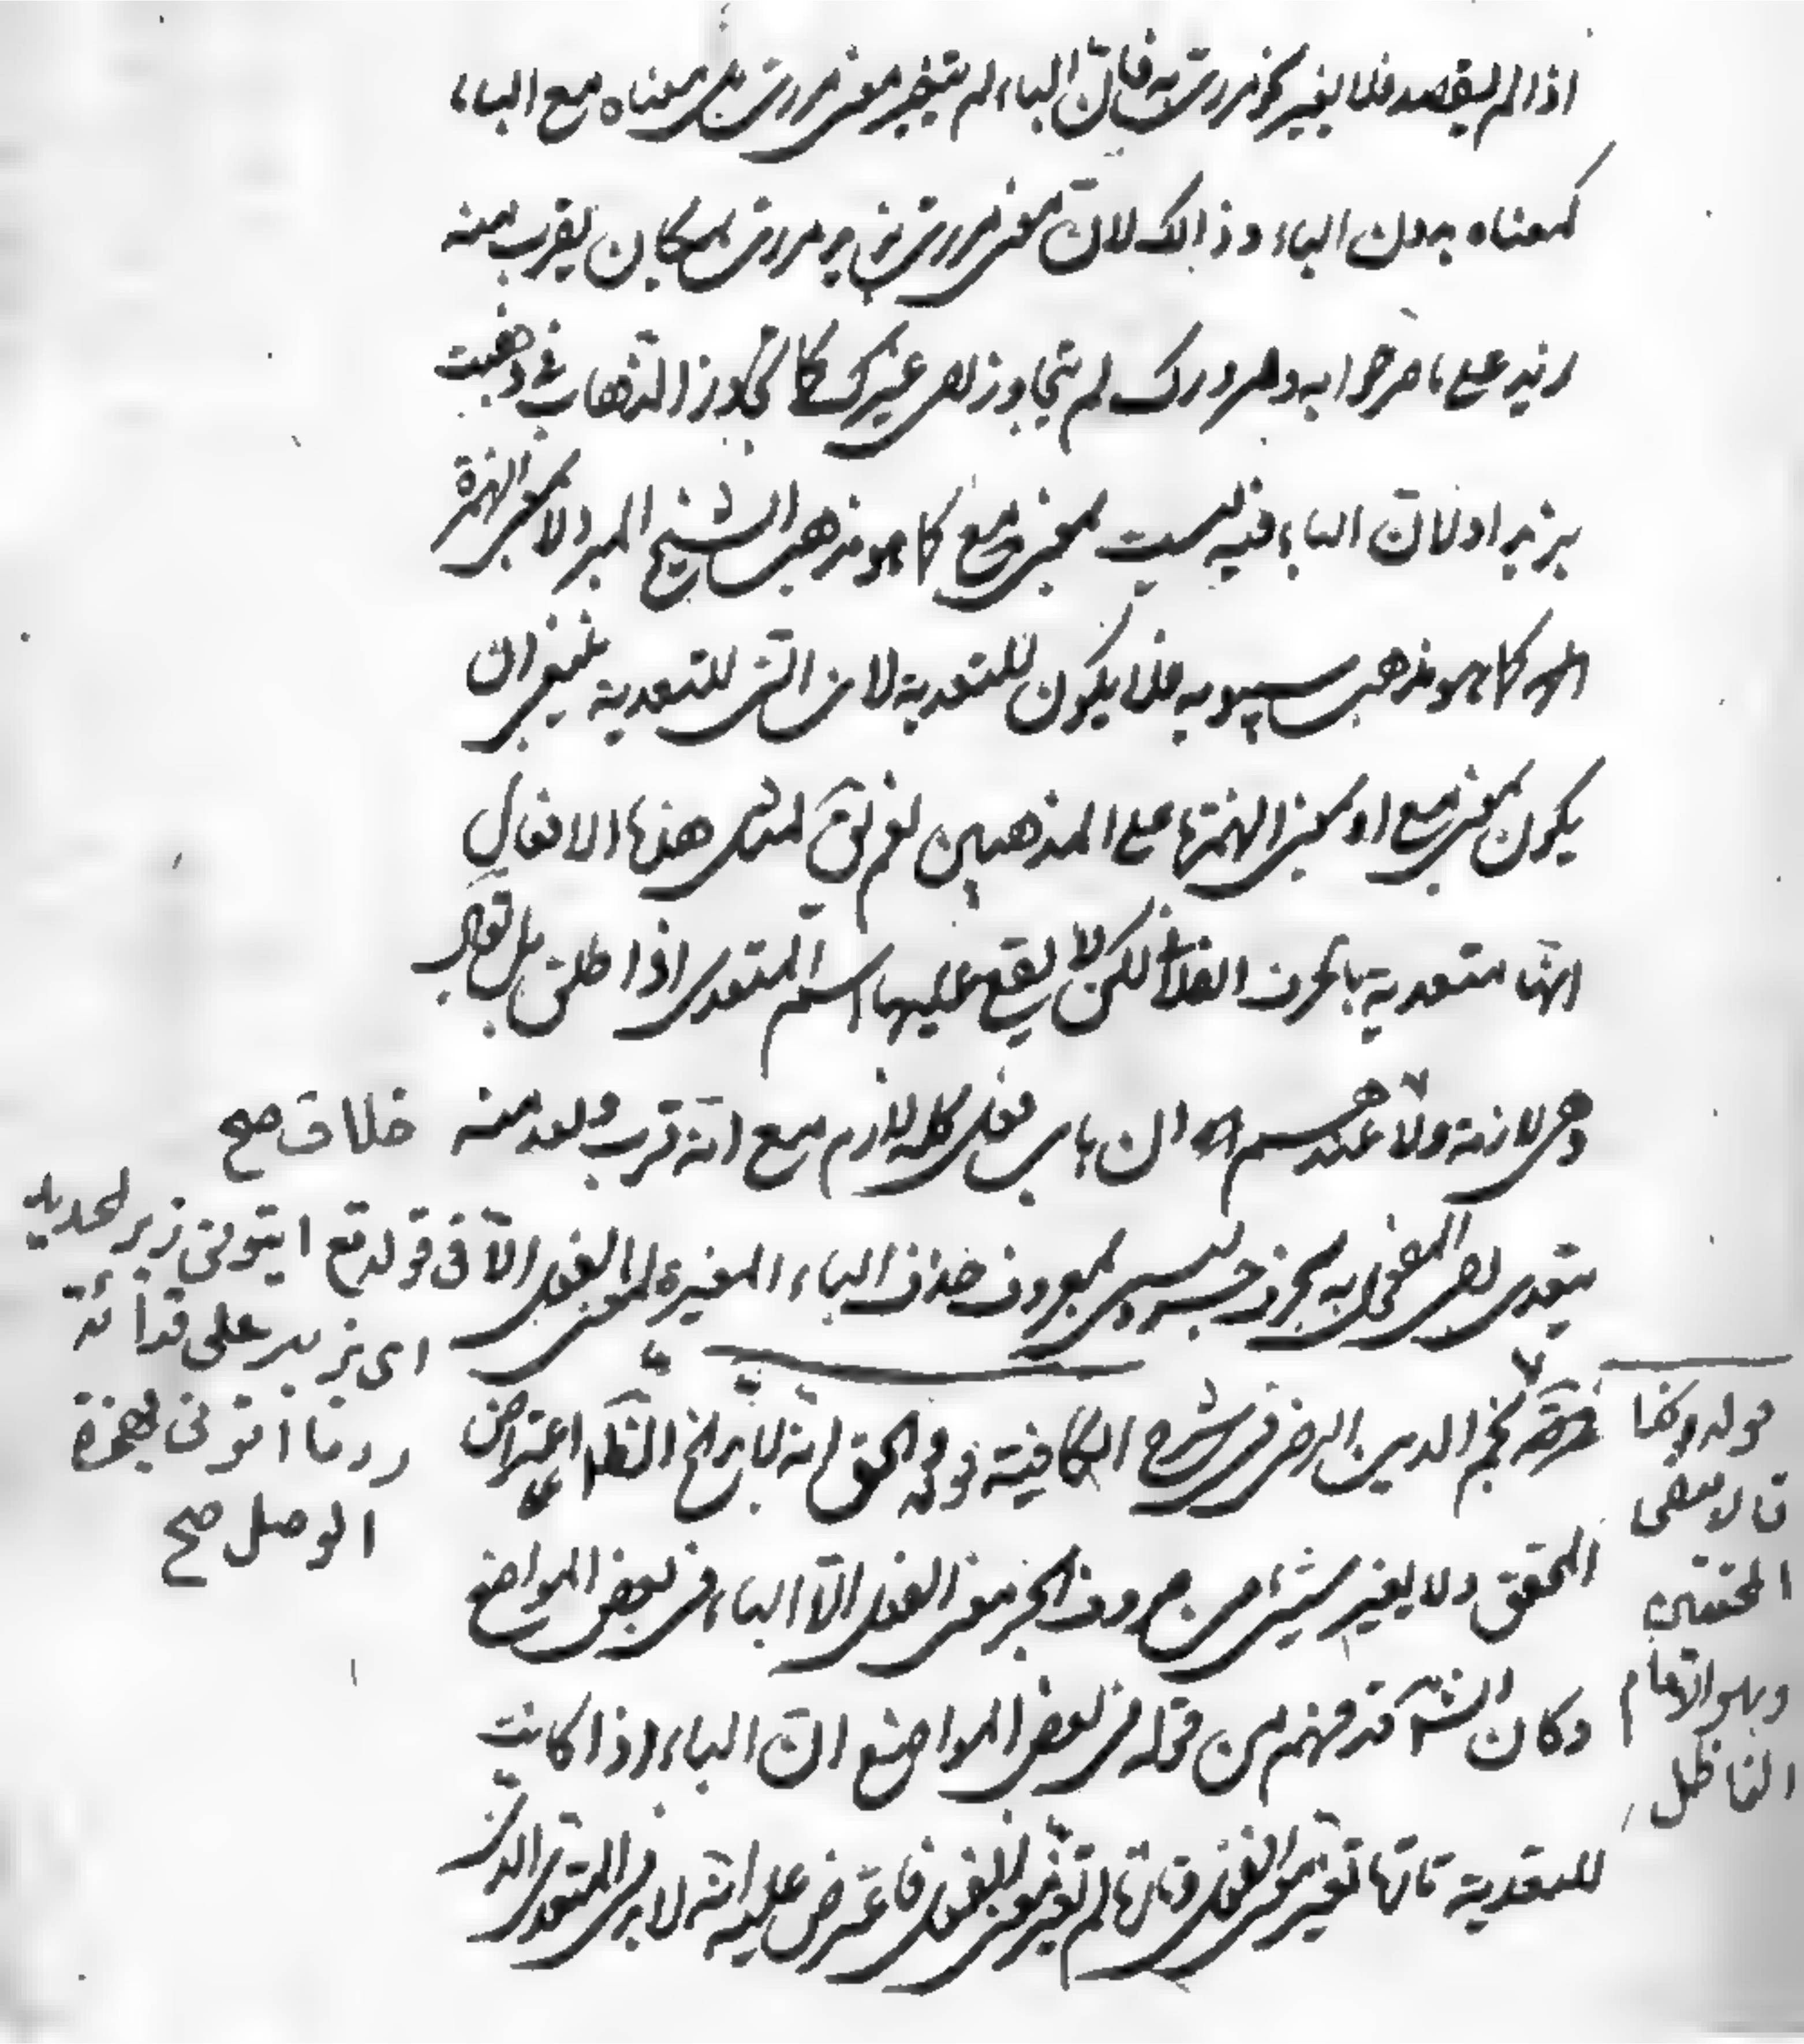 اذا لم يقصد فلا يغير نحو مررت به فان الباء لم يتغير معنى مررت بل معناه مع الباء
كمعناه بدون الباء وذالك لان معنى مررت بزيد مررت بمكان يقرب منه
زيد على ما صرحوا به ومرورك لم يتجاوز الى غيرك كما تجاوز الذهاب فى ذهبت
بزيد اولان الباء فيه ليست بمعنى مع كما هو مذهب الشيخ المبرد ولا بمعنى الهمزة
كما هو مذهب سيبويه فلا يكون للتعدية لان التى للتعدية ينبغى ان
يكون بمعنى مع او بمعنى الهمزة على المذهبين نعم لمثل هذه الافعال
انها متعدية بالحرف الفلانى لكن لا يقع عليها اسم المتعدى اذا اطلق بل تقول
هى لازمة ولا عندهم ان باب فعل كله لازم مع انه قرب وبعد منه
خلاف صح
يتعدى الى المفعول به بحرف جر وليس بمعروف حذف الباء المغيرة لمعنى الفعل الا فى قوله تع ايتونى زبر الحديد
اى بزبر على قرائة
ردما ائتونى بهمزة
الوصل صح
نجم الدين الرضى فى شرح الكافية وفى الحق انه لا يدفع اعتراض
المحقق ولا يغير شيئ من حروف الجر معنى الفعل الا الباء فى بعض المواضع
وكان الش قد فهم من قوله فى بعض المواضع ان الباء اذا كانت
للتعدية تارة تغير معنى الفعل وتارة لم تغير معنى الفعل فاعترض عليه انه لا بد فى المتعدى الذى
قوله وكما
قال بعض
المحققين
وهو الامام
الفاضل